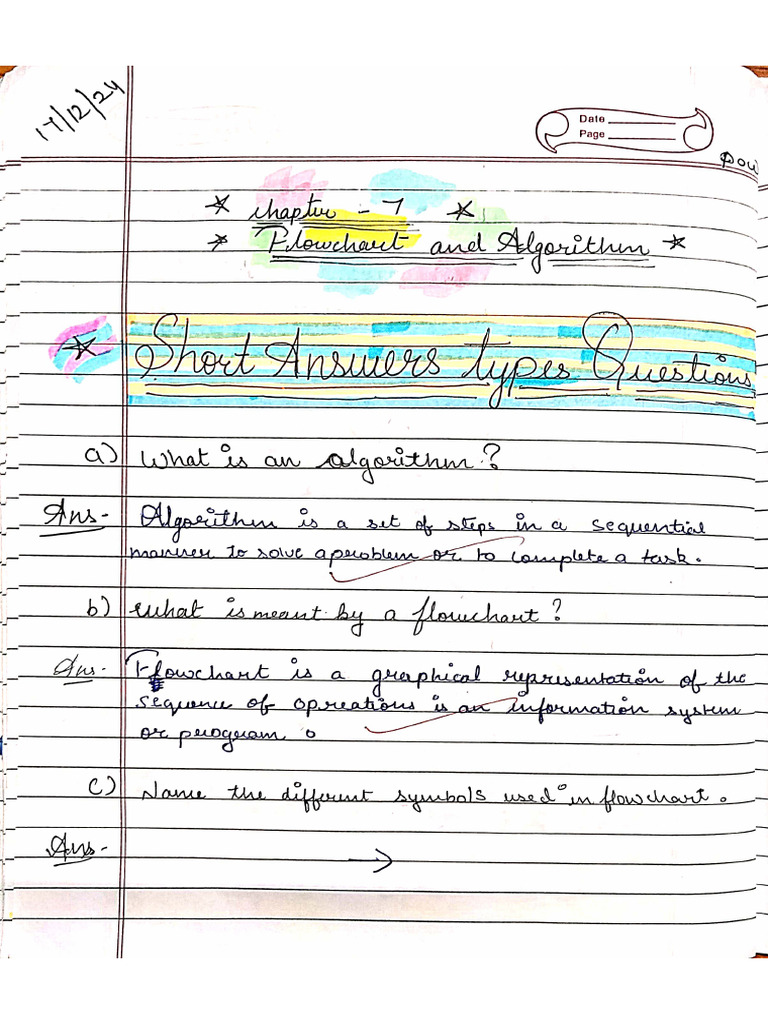 17/12/24
Date
Page
★ Chapter - 7 ★
★ Flowchart and Algorithm ★
★ Short Answers types Questions
a) What is an algorithm?
Ans- Algorithm is a set of steps in a sequential
manner to solve a problem or to complete a task.
b) What is meant by a flowchart?
Ans- Flowchart is a graphical representation of the
sequence of opreations is an information system
or program.
c) Name the different symbols used in flowchart.
Ans- →